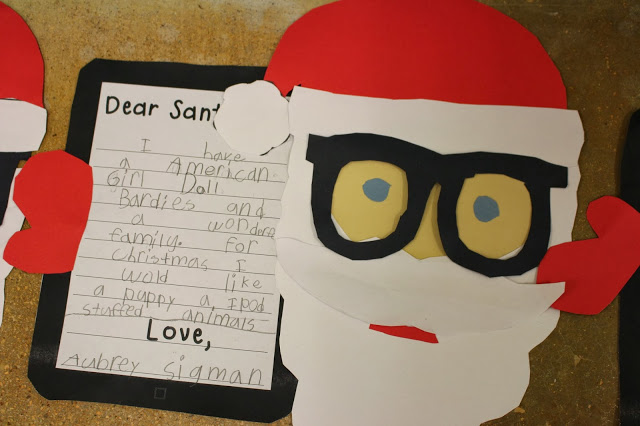 Dear Sant
I have
a American
Girl Doll
Bardies and
a wondere
family. for
christmas I
wold like
a puppy a ipod
stuffed animals
Love,
Aubrey Sigman